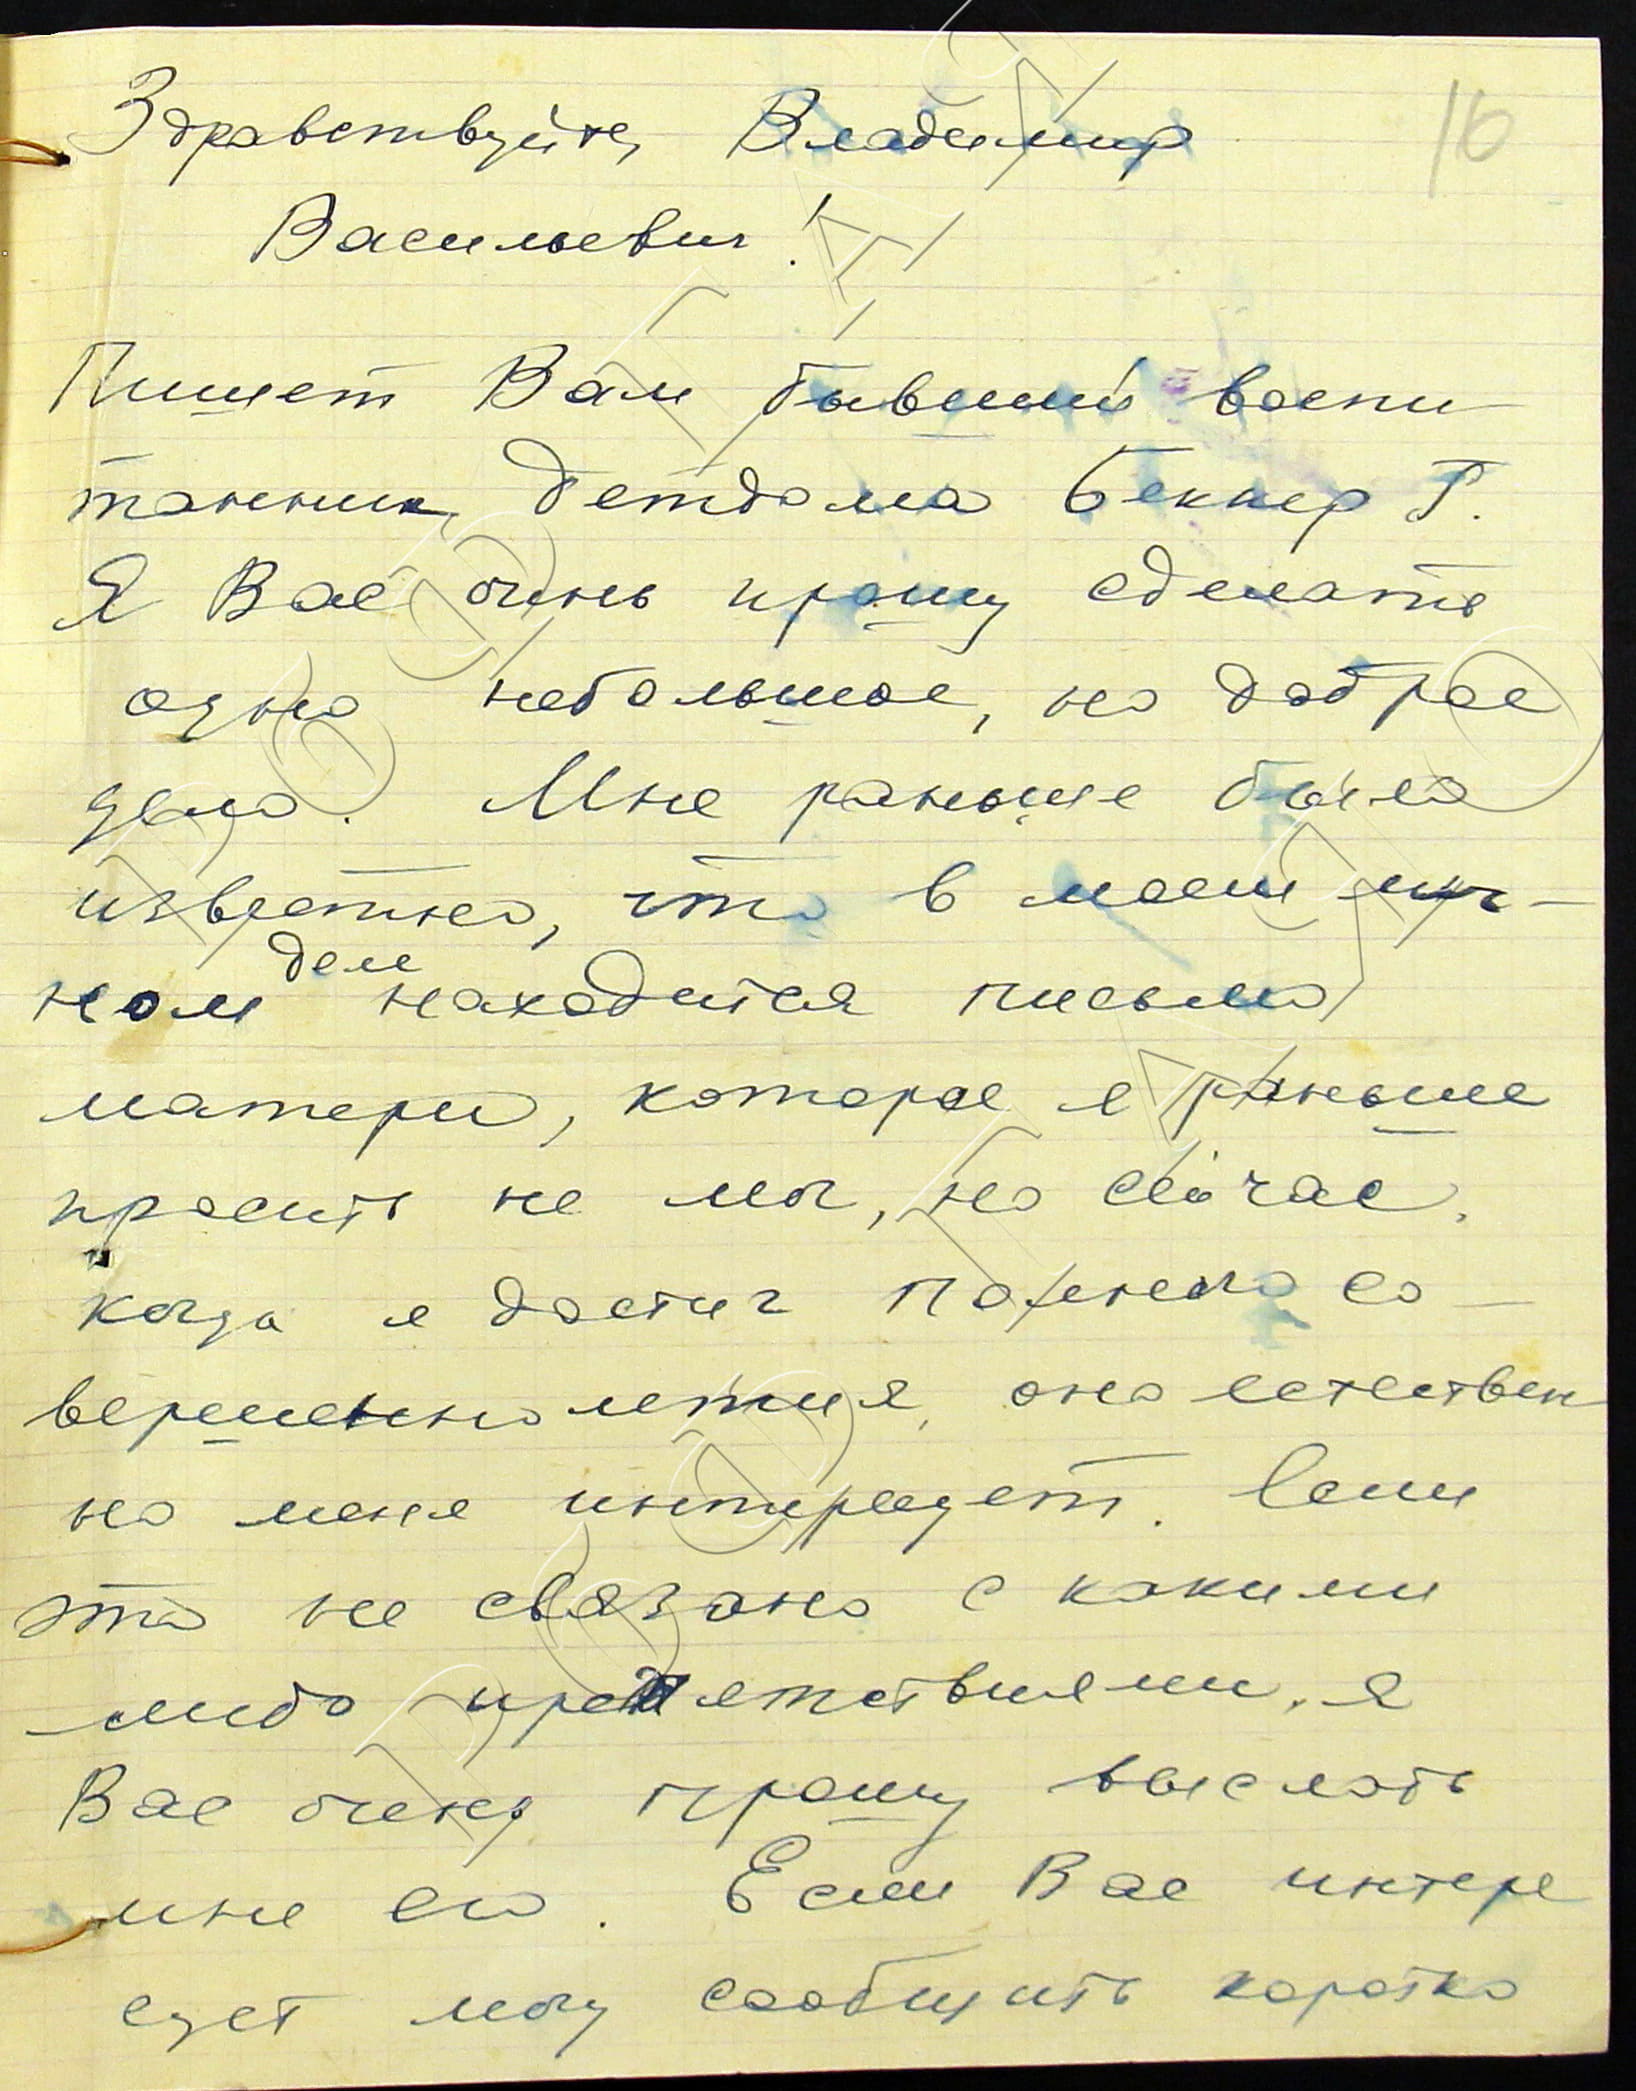 16
Здравствуйте, Владимир
Васильевич!
Пишет Вам бывший воспи-
танник детдома Беккер Г.
Я Вас очень прошу сделать
одно небольшое, но доброе
дело. Мне раньше было
известно, что в моем лич-
деле
ном находится письмо
матери, которое я раньше
просить не мог, но сейчас,
когда я достиг полного со-
вершеннолетия, оно естествен
но меня интересует. Если
это не связано с какими
либо препятствиями, я
Вас очень прошу выслать
мне его. Если Вас интере
сует могу сообщить коротко